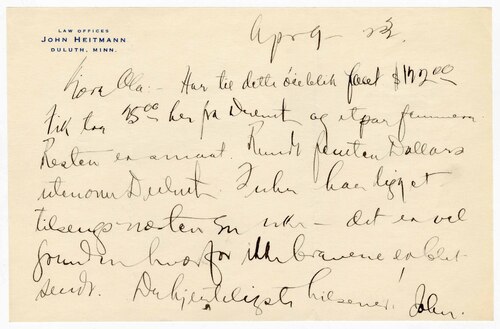 LAW OFFICES
JOHN HEITMANN
DULUTH, MINN.
Apr 9 - 23.
Kjære Ola:- Har til dette øieblik faaet $172.00
fik tag 75.00 her fra Duluth og et par femmere.
Resten er smaat. Rundt femten Dollars
utenom Duluth. har ligget
tilsengs næsten en uke - det er vel
grunden hvorfor ikke brevene er blit
sendt. De hjerteligste hilsener! John.